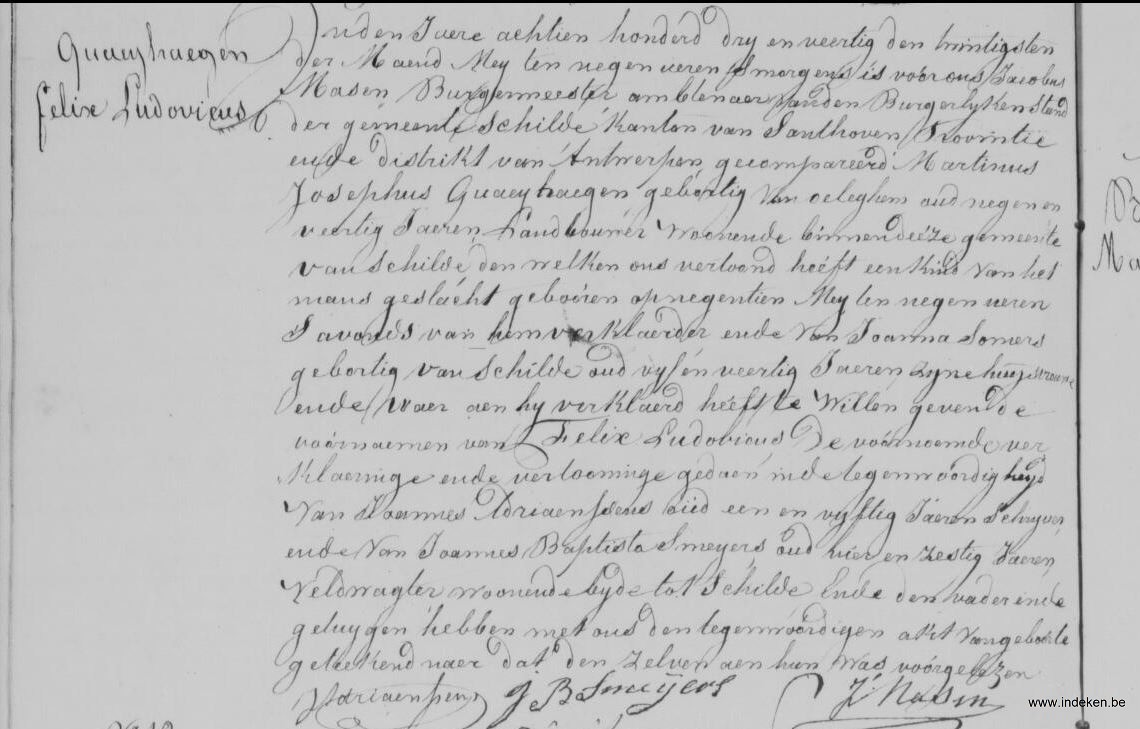 Quaeyhaegen
Felix Ludovicus
In den Jaere achtien honderd dry en veertig den twintigsten
der Maend Mey ten negen ueren Smorgens is voor ons Jacobus
Masen Burgemeester ambtenaer van den Burgerlyken Stand
der gemeente Schilde Kanton van Santhoven Provintie
ende distrikt van Antwerpen gecompareerd Martinus
Josephus Quaeyhaegen gebortig van oeleghem oud negen en
veertig Jaeren Landbouwer woonende binnen deeze gemeente
van Schilde den welken ons vertoond heeft een kind van het
mans geslacht gebooren op negentien Mey ten negen ueren
Savonds van hem verklaerder ende van Joanna Somers
gebortig van Schilde oud vyf en veertig Jaeren zyne huysvrouwe
ende waer aen hy verklaerd heeft te willen geven de
voornaemen van Felix Ludovicus De voornoemde ver
klaeringe ende vertooninge gedaen in de tegenwoordigheyd
Van Joannes Adriaenssens oud een en vyftig Jaeren Schryver
ende van Joannes Baptista Smeyers oud vier en zestig Jaeren
Veldwagter woonende byde tot Schilde Ende den vader ende
getuygen hebben met ons den tegenwoordigen akt van geboorte
geteekend naer dat den zelven aen hun was voorgelezen
Adriaenssens J B Smeijers J Masen
www.indeken.be